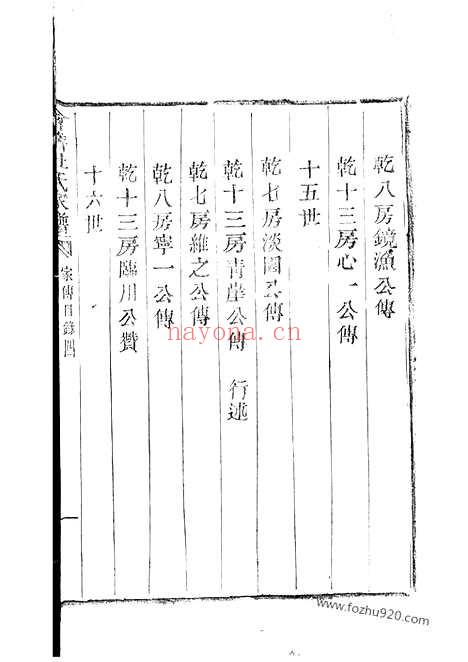 乾八房鏡漁公傳
乾十三房心一公傳
十五世
乾七房淡園公傳
乾十三房青崖公傳 行述
乾七房維之公傳
乾八房寧一公傳
乾十三房臨川公贊
十六世
杜氏家譜 家傳目錄四
一
nayona.cn
www.fozhu920.com